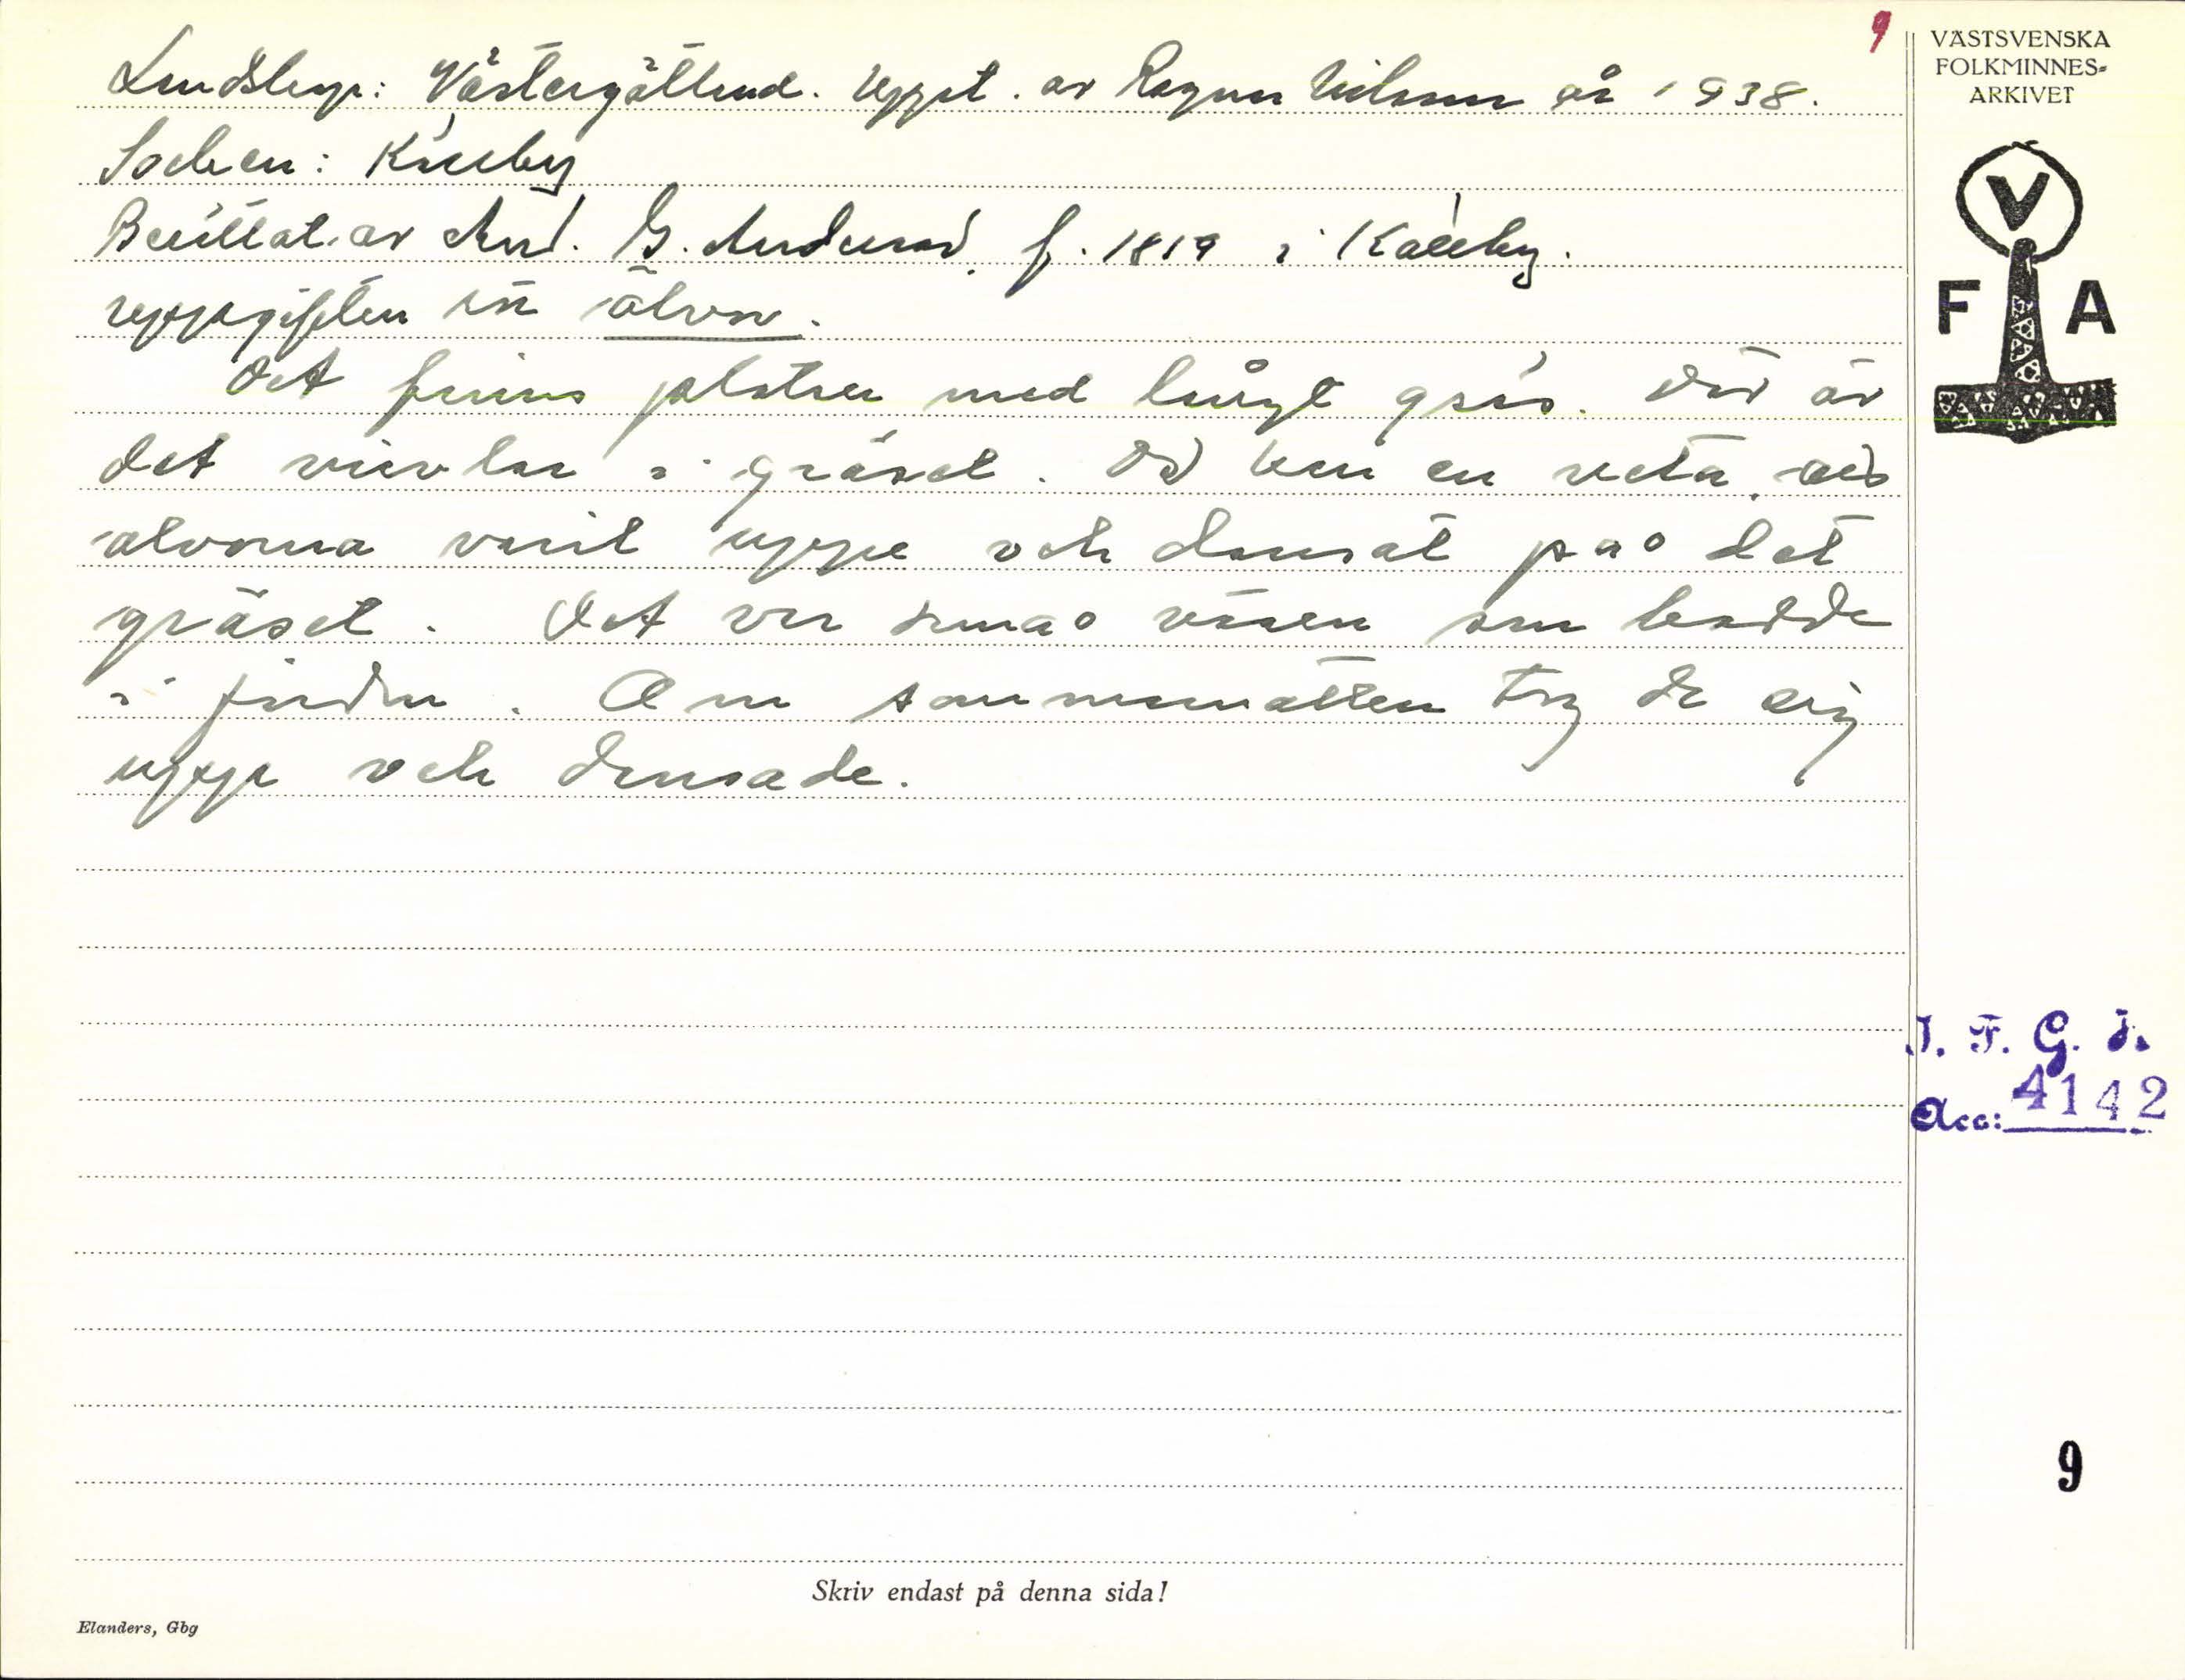 9
Landskap: Västergötland. Uppt. av Ragnar Nilsson år 1938.
Socken: Källby
Berättat av And. G. Andersson, f. 1819 i Källby.
uppgiften rör älvor.
Det finns platser med långt gräs. Där är
det virvlar i gräset. Då kan en veta att
älvorna varit uppe och dansat på det
gräset. Det var små väsen som bodde
i jorden. Om sommarnatten tog de sig
uppe och dansade.
VÄSTSVENSKA
FOLKMINNES=
ARKIVET
V
F A
I. F. G. H.
Acc: 4142
9
Skriv endast på denna sida!
Elanders, Gbg